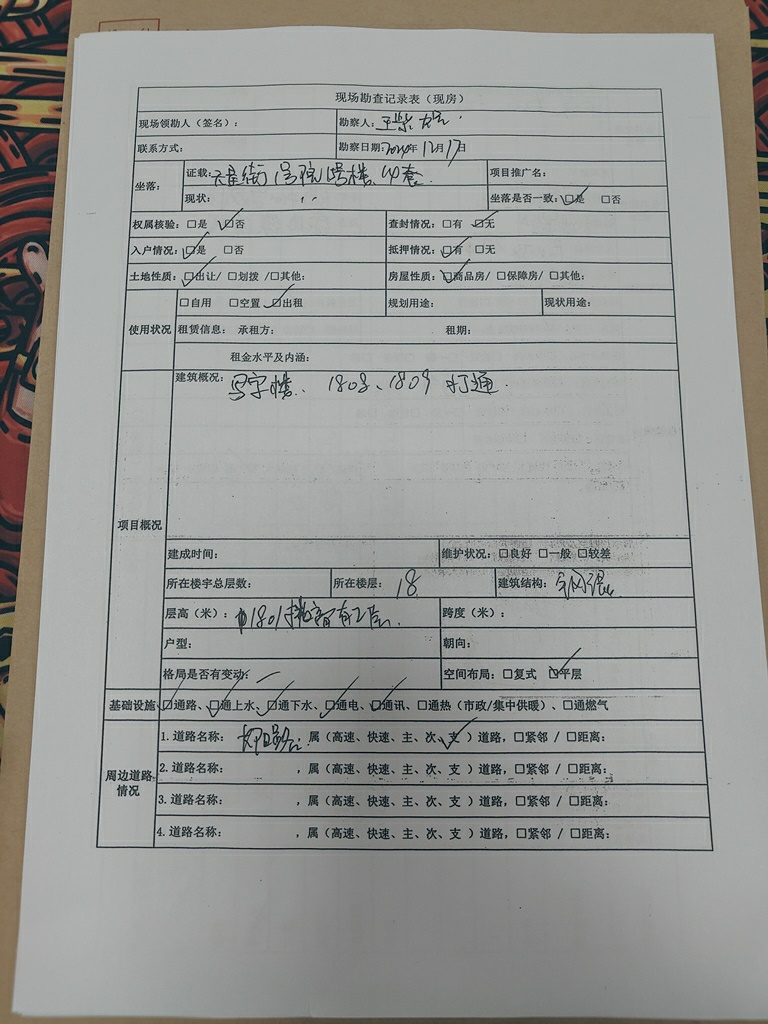 现场勘查记录表（现房）
现场领勘人（签名）： 勘察人：
联系方式： 勘察日期：2024年12月17日
坐落： 证载： 街1号院 号楼、 套 项目推广名：
现状： 〃 坐落是否一致：☑是 □否
权属核验：□是 ☑否 查封情况：□有 ☑无
入户情况：☑是 □否 抵押情况：☑有 □无
土地性质：☑出让/ □划拨 /□其他： 房屋性质：☑商品房/ □保障房/ □其他：
使用状况 □自用 □空置 ☑出租 规划用途： 现状用途：
租赁信息： 承租方： 租期：
租金水平及内涵：
项目概况 建筑概况：写字楼、1808、1809 打通.
建成时间： 维护状况：□良好 □一般 □较差
所在楼宇总层数： 所在楼层：18 建筑结构：钢混
层高（米）： 1801 跨度（米）：
户型： 朝向：
格局是否有变动： 空间布局：□复式 ☑平层
基础设施 ☑通路、☑通上水、☑通下水、☑通电、☑通讯、□通热（市政/集中供暖）、□通燃气
周边道路情况 1.道路名称： ，属（高速、快速、主、次、支✓）道路，□紧邻 / □距离：
2.道路名称： ，属（高速、快速、主、次、支 ）道路，□紧邻 / □距离：
3.道路名称： ，属（高速、快速、主、次、支 ）道路，□紧邻 / □距离：
4.道路名称： ，属（高速、快速、主、次、支 ）道路，□紧邻 / □距离：